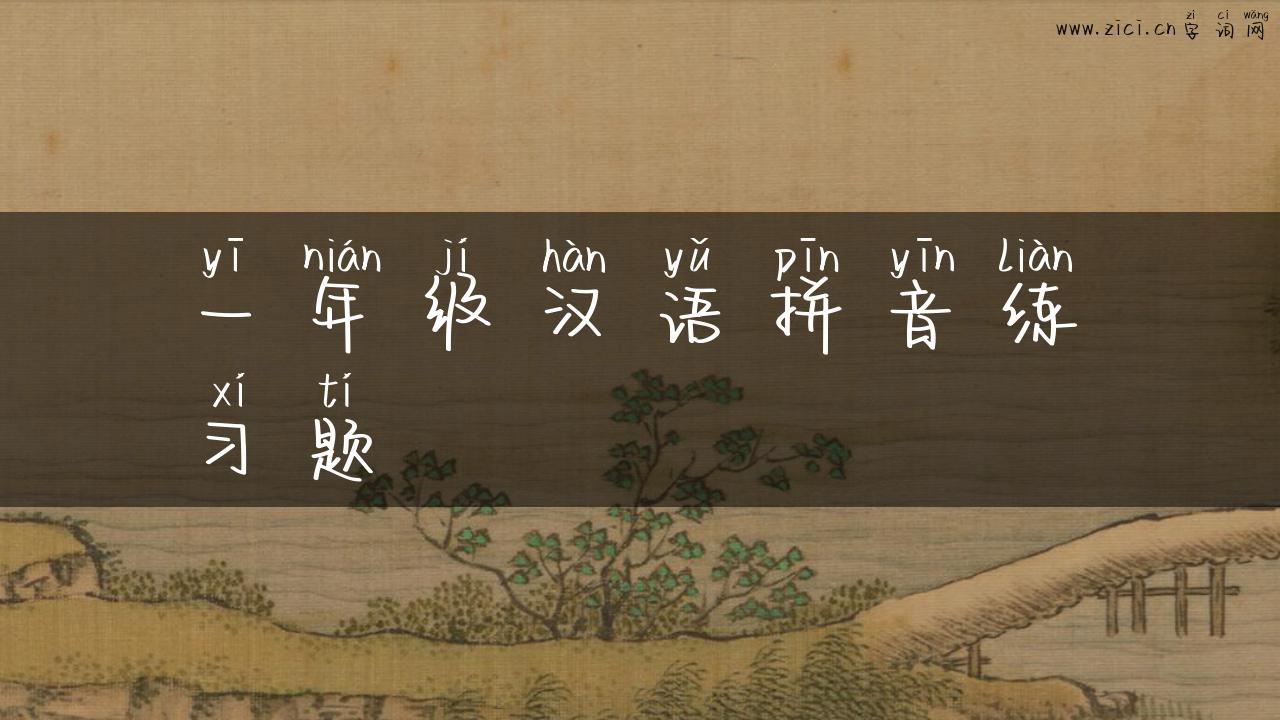 zì cí wǎng
www.zici.cn 字词网
yī nián jí hàn yǔ pīn yīn liàn
一年级汉语拼音练
xí tí
习题